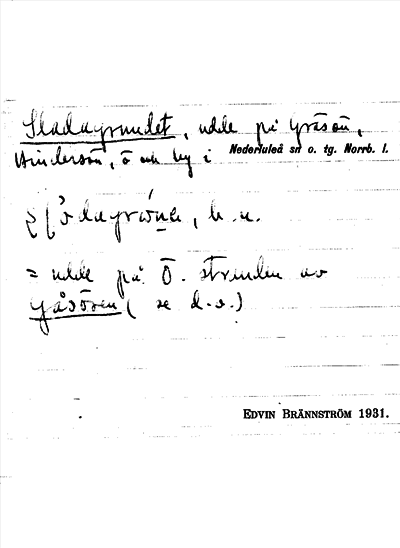 Sladagrundet, udde på Gråsön,
Hindersön, ö och by i Nederluleå sn o. tg. Norrb. l.
b. u.
= udde på Ö. stranden av
Gåsören (se d.o.)
EDVIN BRÄNNSTRÖM 1931.